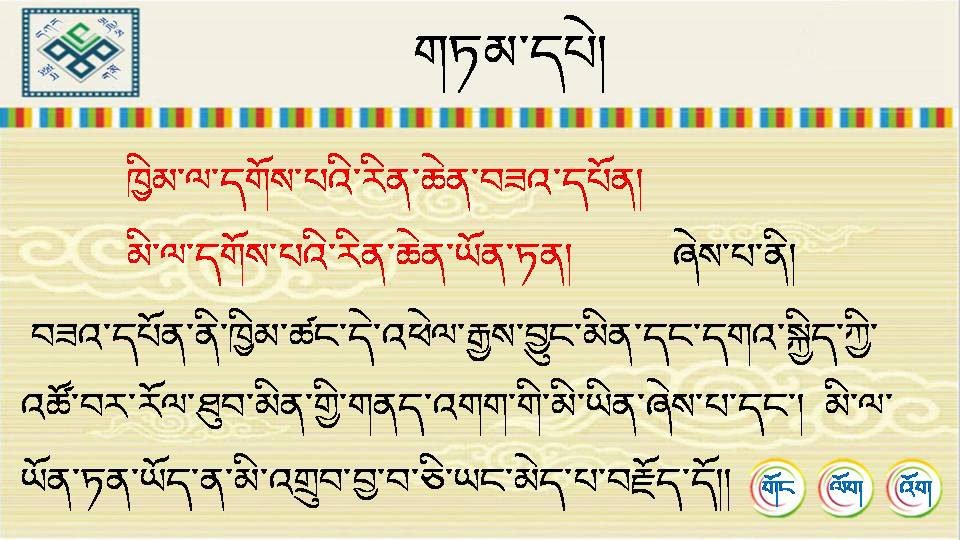 གཏམ་དཔེ།
ཁྱིམ་ལ་དགོས་པའི་རིན་ཆེན་བཟའ་དཔོན།
མི་ལ་དགོས་པའི་རིན་ཆེན་ཡོན་ཏན། ཞེས་པ་ནི།
བཟའ་དཔོན་ནི་ཁྱིམ་ཚང་དེ་འཕེལ་རྒྱས་བྱུང་མིན་དང་དགའ་སྐྱིད་ཀྱི་
འཚོ་བར་རོལ་ཐུབ་མིན་གྱི་གནད་འགག་གི་མི་ཡིན་ཞེས་པ་དང་། མི་ལ་
ཡོན་ཏན་ཡོད་ན་མི་འགྲུབ་བྱ་བ་ཅི་ཡང་མེད་པ་བརྗོད་དོ།།
གོང ལོག འོག